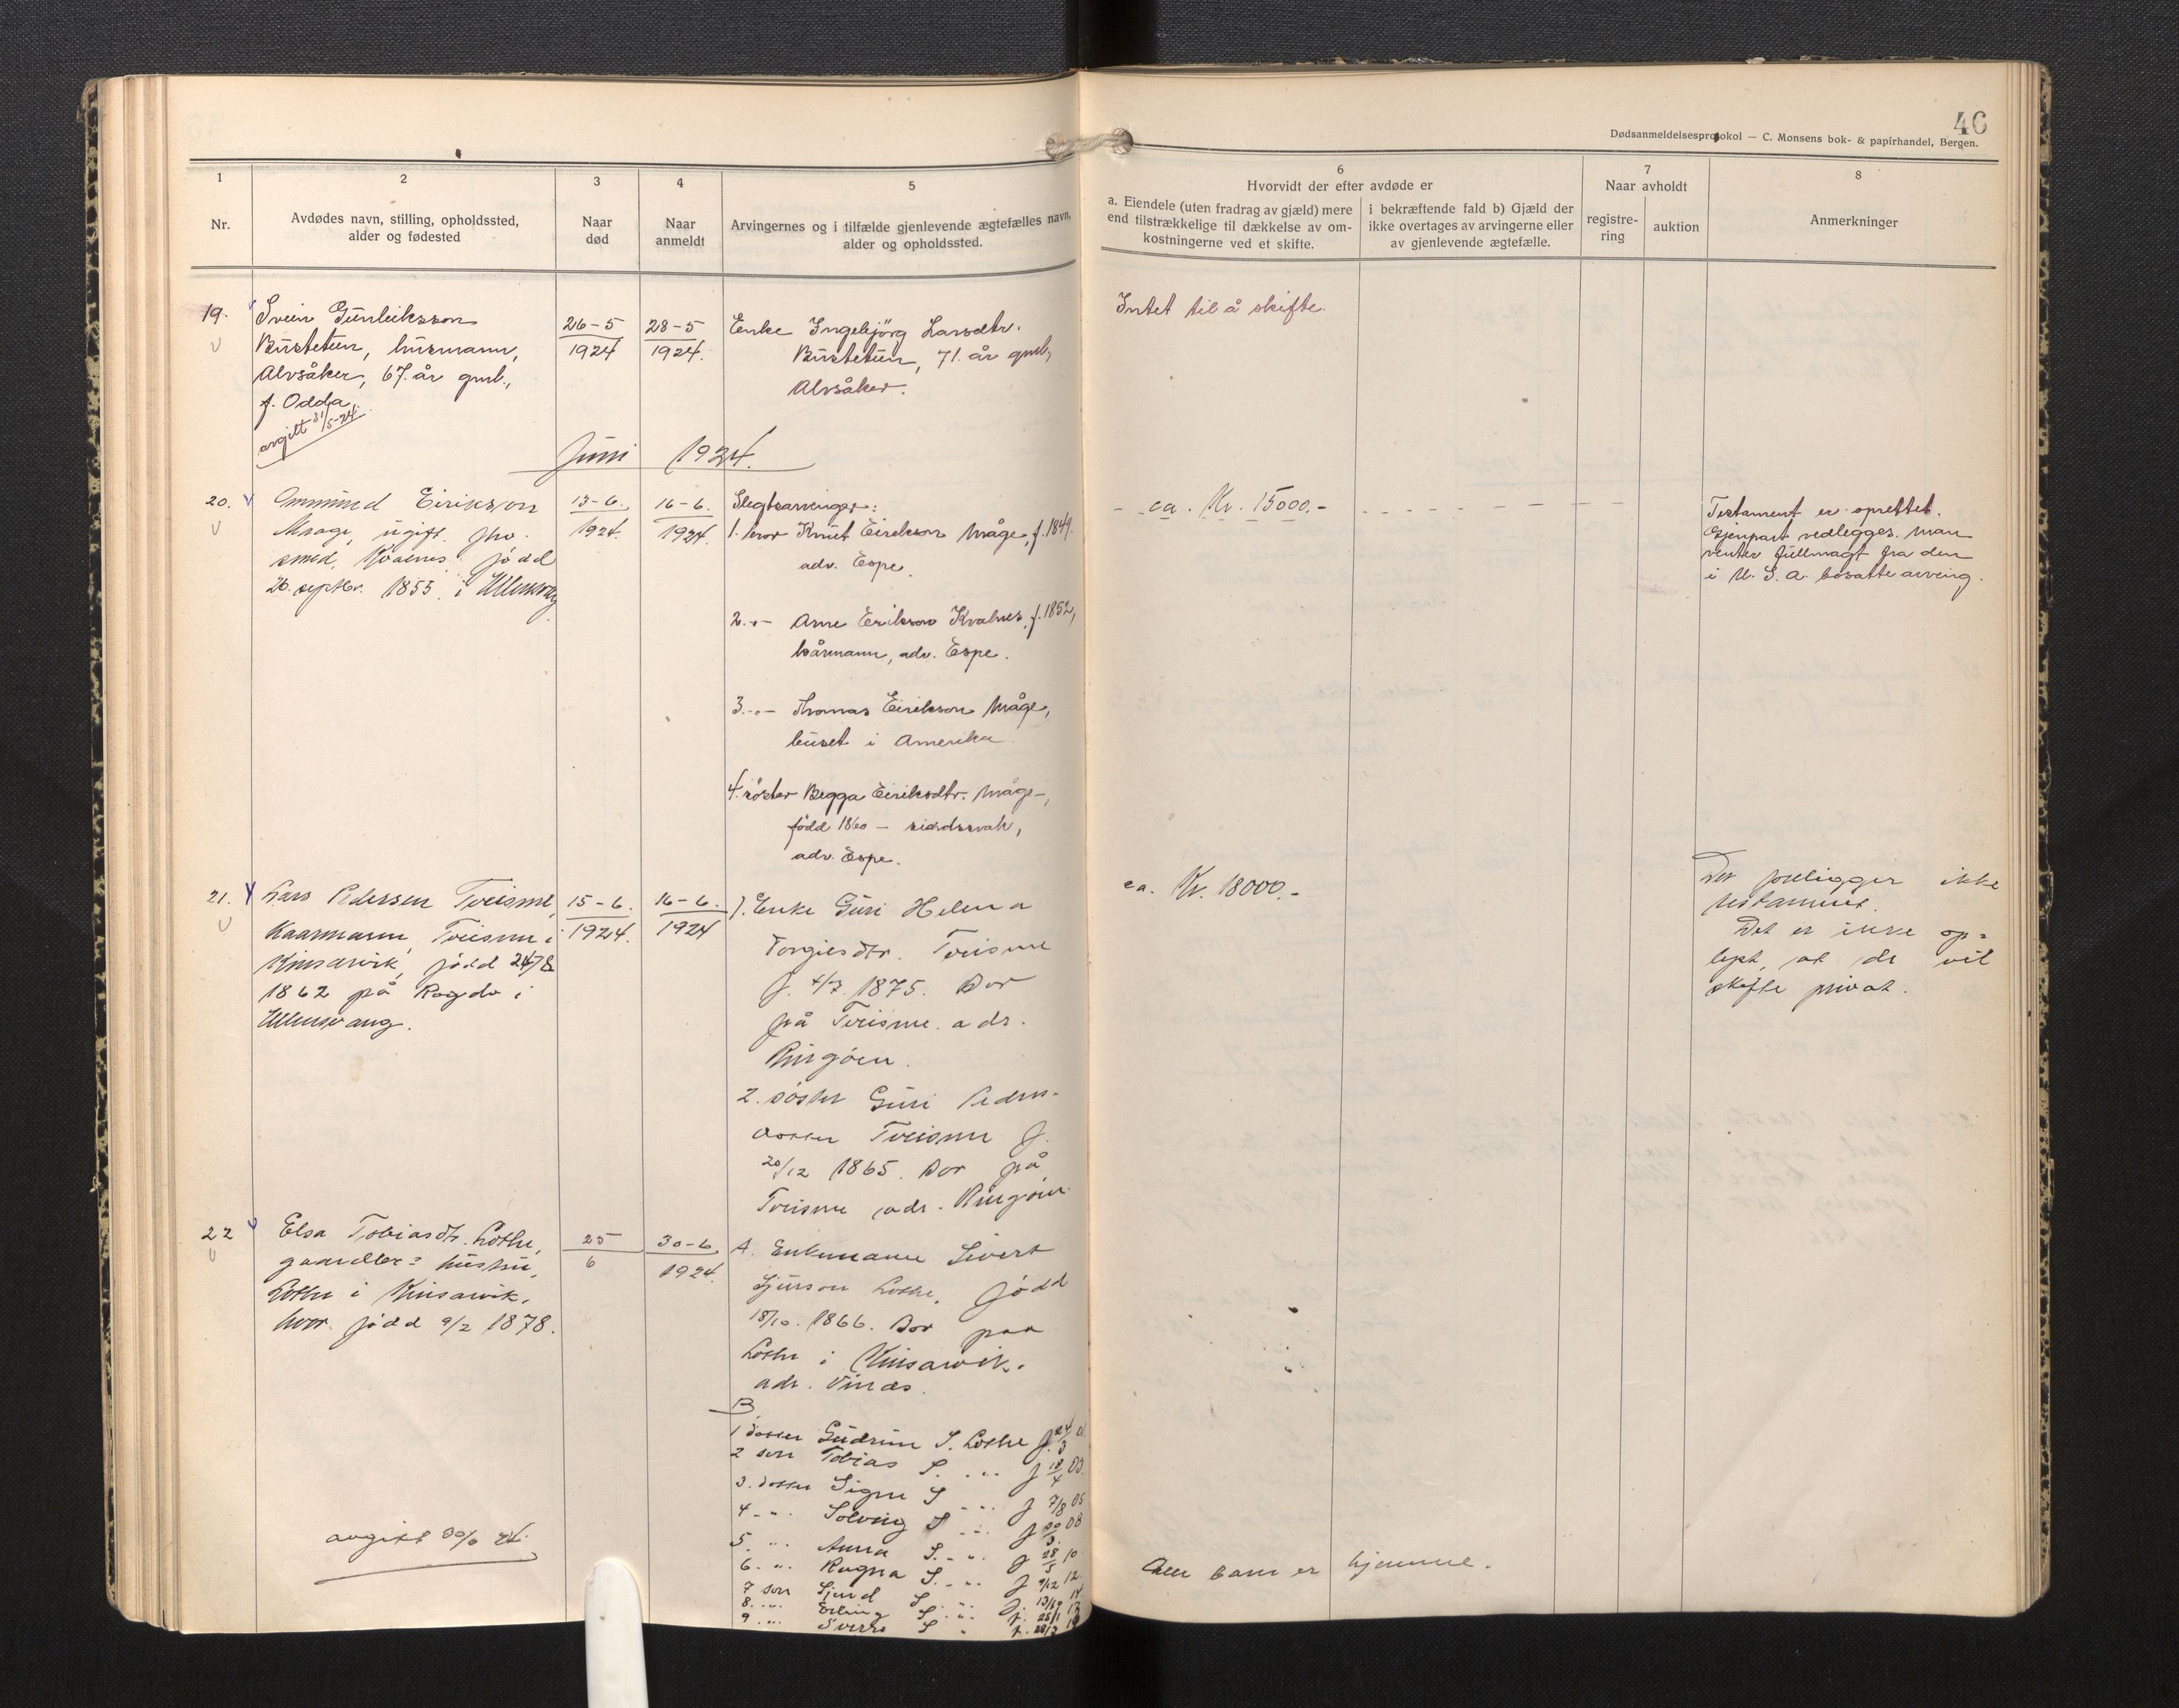 46
Dødsanmeldelsesprotokol — C. Monsens bok- & papirhandel, Bergen.
1
Nr.
2
Avdødes navn, stilling, opholdssted,
alder og fødested
3
Naar
død
4
Naar
anmeldt
5
Arvingernes og i tilfælde gjenlevende ægtefælles navn,
alder og opholdssted.
6
Hvorvidt der efter avdøde er
a. Eiendele (uten fradrag av gjæld) mere
end tilstrækkelige til dækkelse av om-
kostningerne ved et skifte.
i bekræftende fald b) Gjæld der
ikke overtages av arvingerne eller
av gjenlevende ægtefælle.
7
Naar avholdt
registre-
ring
auktion
8
Anmerkninger
19.
Svein Gunleiksson
Bustetun, husmann,
Alvsåker, 67. år gml.,
f. Odda.
avgitt 31/5-24.
26-5
1924
28-5
1924.
Enke Ingebjörg Larsdtr.
Bustetun, 71. år gml.,
Alvsåker.
Intet til å skifte.
Juni 1924.
20.
Ommund Eirikson
Maage, ugift, fhv.
smed, Kvalnes. född
26. septbr. 1855. i Ullensvang
13-6.
1924.
16-6.
1924.
Slegtsarvinger:
1. bror Knut Eirikson Måge, f. 1849.
adr. Espe.
2. -"- Arne Erikson Kvalnes, f. 1852,
kårmann, adr. Espe.
3. -"- Thomas Eirikson Måge,
buset i Amerika.
4. söster Begga Eiriksdtr. Måge-,
född 1860 - sindssvak,
adr. Espe.
- - ca. Kr. 15000.-
Testament er oprettet.
Gjenpart vedlegges. Man
venter fullmagt fra den
i U. S. A. bosatte arving.
21.
Lars Pedersen Tveisme,
Kaarmann, Tveisme i
Kinsarvik, född 24/8
1862 på Rogde i
Ullensvang.
15-6.
1924.
16-6.
1924
1. Enke Guri Helena
Torgiesdtr. Tveisme
f. 4/7. 1875. Bor
på Tveisme. adr.
Ringöen.
2. söster Guri Peders-
dotter Tveisme f.
20/12 1865. Bor på
Tveisme adr. Ringöen.
ca. Kr. 18000.-
Der foreligger ikke
testament.
Det er ikke op=
lyst, at de vil
skifte privat.
22
Elsa Tobiasdtr. Lothe,
gaardbr= hustru,
Lothe i Kinsarvik,
hvor född 9/2 1878.
avgitt 30/6 24.
25
6
30-6
1924.
A. Enkemann Sivert
Sjurson Lothe, född
18/10. 1866. Bor paa
Lothe i Kinsarvik.
adr. Vines.
B
1 dotter Gudrun S. Lothe f. 24/3 01.
2 son Tobias S. -"- f 18/4 03.
3. dotter Signe S -"- f 7/8 05
4 -"- Solveig S -"- f 08
5. -"- Anna S. -"- f 28/5 10
6. -"- Ragna S. -"- f 9/12 12.
7 son Sjurd S. -"- f.
8. -"- Erling S. -"- f. 25/1
9 -"- Sverre S " f. 28/3 19
Alle barn er hjemme.